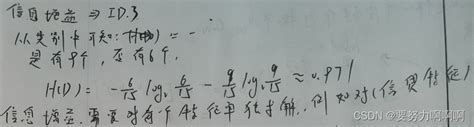 信息增益 ⇒ ID.3
从类别中可知: H(D) = -
是有9个，否有6个.
H(D) = - 6/15 log₂ 6/15 - 9/15 log₂ 9/15 ≈ 0.971
信息增益.需要对每个特征单独求解.例如对(信贷特征)
CSDN @要努力啊啊啊